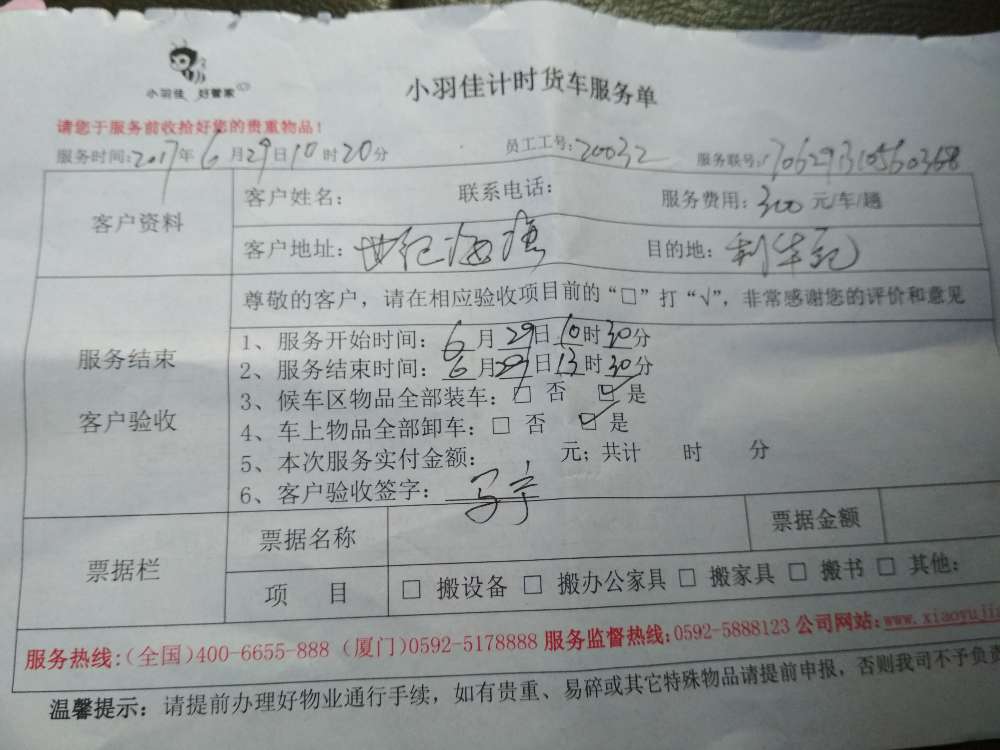 小羽佳 好管家
小羽佳计时货车服务单
请您于服务前收拾好您的贵重物品！
服务时间:2017年6月29日10时20分 员工工号:20032 服务联号:170629310560368
客户资料
客户姓名： 联系电话： 服务费用:300元/车/趟
客户地址：世纪海 目的地：利华
服务结束
客户验收
尊敬的客户，请在相应验收项目前的“□”打“√”，非常感谢您的评价和意见
1、服务开始时间：6月29日10时30分
2、服务结束时间：6月29日13时30分
3、候车区物品全部装车：□ 否 ☑ 是
4、车上物品全部卸车：□ 否 ☑ 是
5、本次服务实付金额： 元；共计 时 分
6、客户验收签字：
票据栏
票据名称 票据金额
项 目 □ 搬设备 □ 搬办公家具 □ 搬家具 □ 搬书 □ 其他：
服务热线:(全国)400-6655-888 (厦门)0592-5178888 服务监督热线:0592-5888123 公司网站:www.xiaoyuji
温馨提示：请提前办理好物业通行手续，如有贵重、易碎或其它特殊物品请提前申报，否则我司不予负责